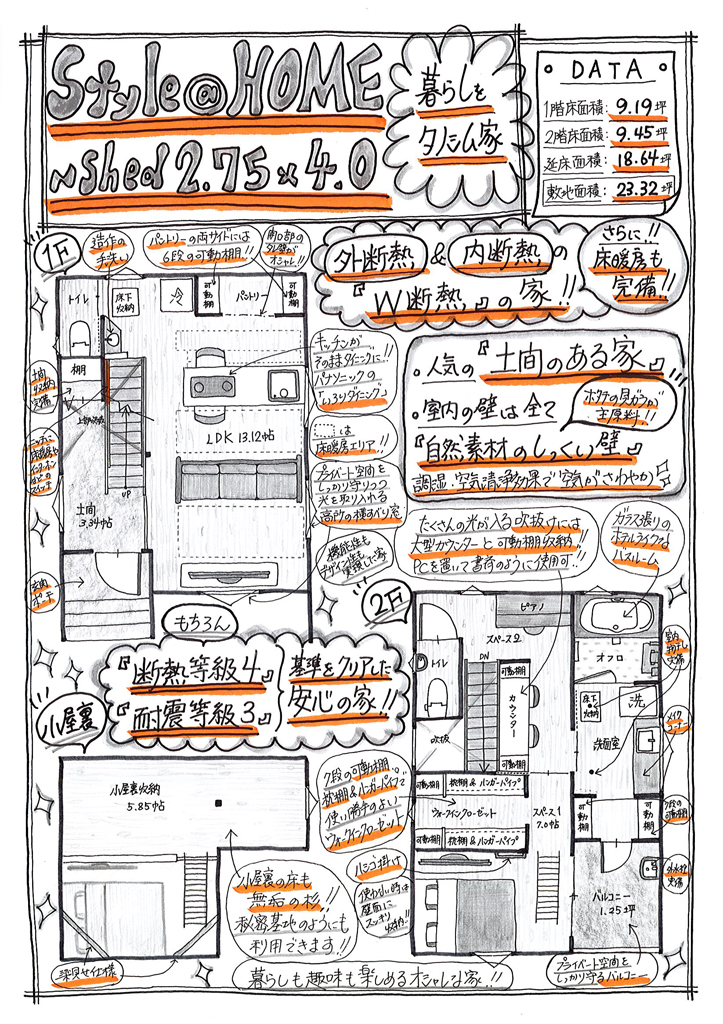 Style@HOME
~Shed 2.75×4.0
暮らしを
タノシム家
DATA
1階床面積: 9.19坪
2階床面積: 9.45坪
延床面積: 18.64坪
敷地面積: 23.32坪
1F
造作の
手洗い
パントリーの両サイドには
6段の可動棚!!
開口部の
タレ壁が
オシャレ!!
外断熱&内断熱の
『W断熱』の家!!
さらに!!
床暖房も
完備!!
トイレ
床下
収納
可動棚
パントリー
可動棚
棚
土間
収納
完備
UP
LDK 13.12帖
土間
3.34帖
玄関
ポーチ
キッチンが
そのままダイニングに!!
パナソニックの
『いろりダイニング』
は
床暖房エリア!!
プライベート空間を
しっかり守りつつ
光を取り入れる
高所の横すべり窓
機能性も
デザイン性も
実現した家
・人気の『土間のある家』
・室内の壁は全て
ホタテの貝ガラが
主原料!!
『自然素材のしっくい壁』
調湿、空気清浄効果で空気がさわやか
たくさんの光が入る吹抜けには
大型カウンターと可動棚収納!!
PCを置いて書斎のように使用可!!
ガラス張りの
ホテルライクな
バスルーム
もちろん
『断熱等級4』
『耐震等級3』
基準をクリアした
安心の家!!
2F
ピアノ
スペース2
トイレ
DN
可動棚
カウンター
可動棚
吹抜
オフロ
床下
収納
洗
洗面室
室内
物干し
完備
メイク
コーナー
可動棚
枕棚&ハンガーパイプ
ウォークインクローゼット
可動棚
枕棚&ハンガーパイプ
スペース1
7.0帖
可動棚
可動棚
7段の
可動棚
外水栓
完備
バルコニー
1.25坪
プライベート空間を
しっかり守るバルコニー
小屋裏
小屋裏収納
5.85帖
7段の可動棚、
枕棚&ハンガーパイプで
使い勝手のよい
ウォークインクローゼット
ハシゴ掛け
使わない時は
壁面に
スッキリ
収納!!
小屋裏の床も
無垢の杉!!
秘密基地のようにも
利用できます!!
梁見せ仕様
暮らしも趣味も楽しめるオシャレな家!!